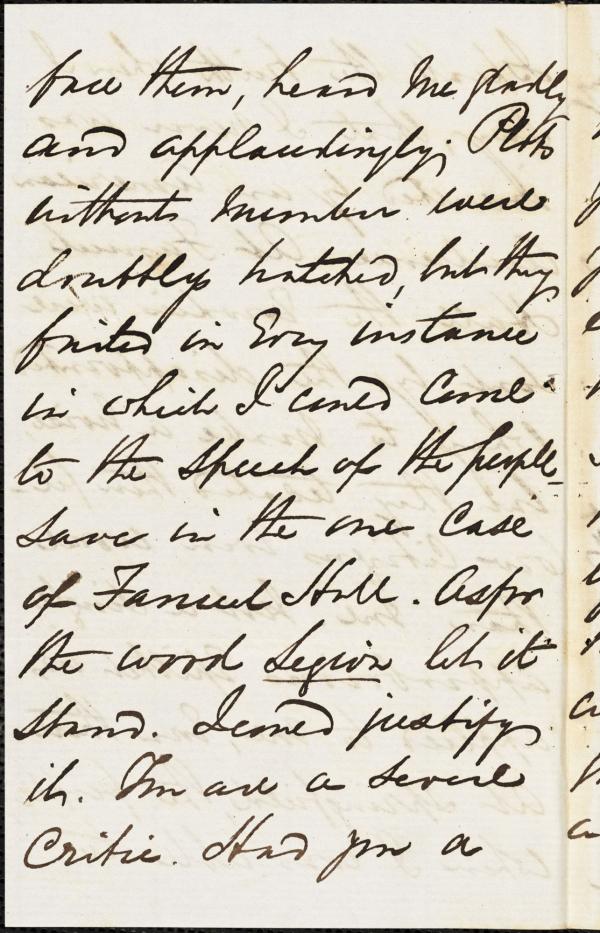 face them, heard me gladly
and applaudingly. Plots
without number were
doubbly hatched, but they
failed in Every instance
in which I could come
to the speech of the people
save in the one case
of Faneuil Hall. As for
the word Legion let it
stand. I could justify
it. You are a severe
Critic. Had you a